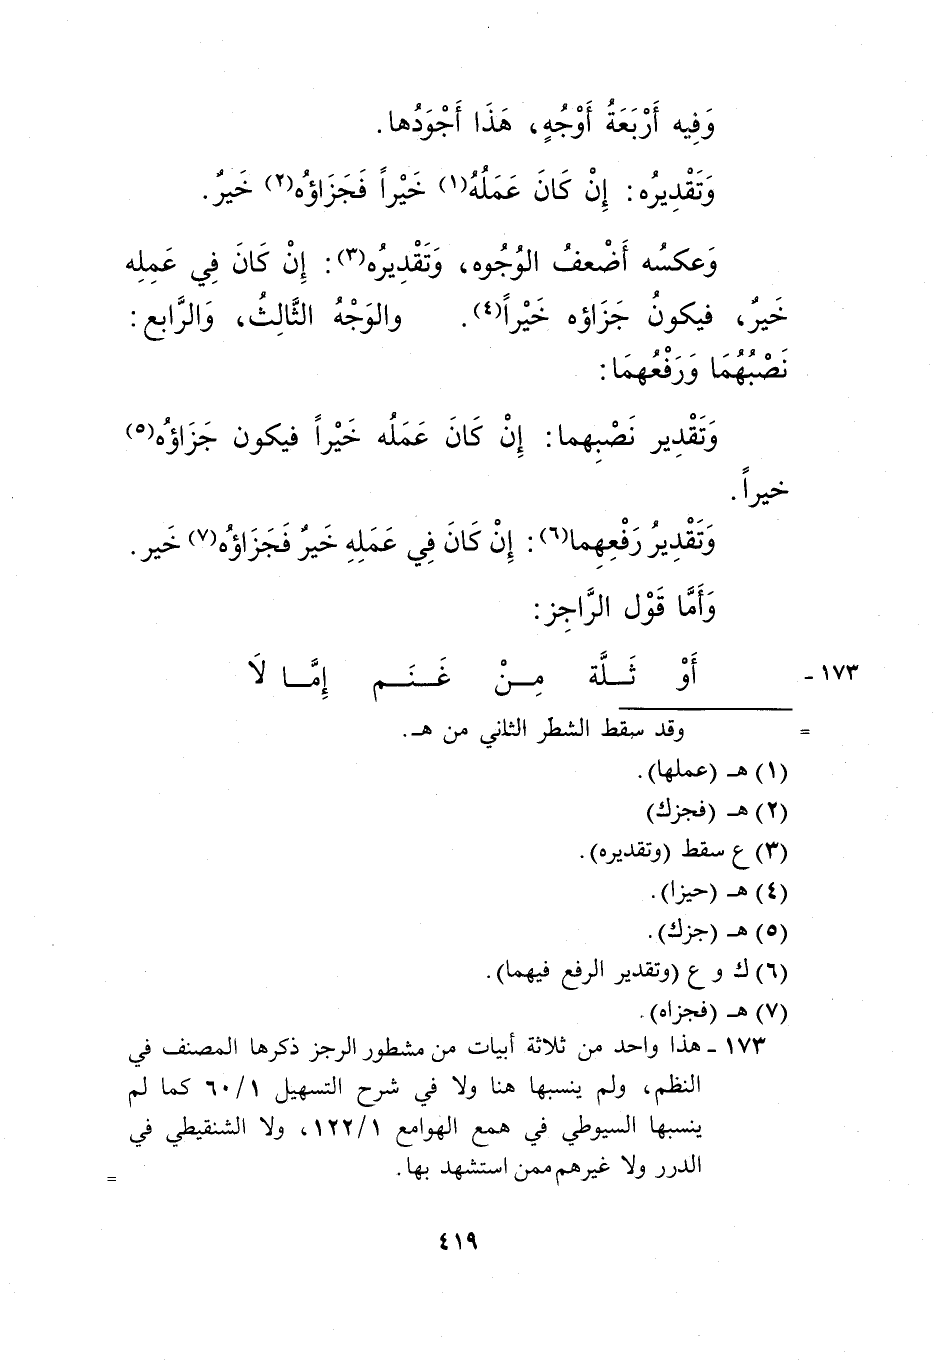 وَفِيه أَرْبَعَةُ أَوْجُهٍ، هَذَا أَجْوَدُها.
وَتَقْدِيرُه: إِنْ كَانَ عَمَلُهُ(١) خَيْراً فَجَزَاؤُه(٢) خَيرٌ.
وَعكسُه أَضْعفُ الوُجُوه، وَتَقْدِيرُه(٣): إِنْ كَانَ فِي عَمِلِه
خَيرٌ، فيكونُ جَزَاؤه خَيْراً(٤). والوَجْهُ الثَّالِثُ، وَالرَّابع:
نَصْبُهُمَا وَرَفْعُهمَا:
وَتَقْدِير نَصْبِهما: إِنْ كَانَ عَمَلُه خَيْراً فيكون جَزَاؤُه(٥)
خيراً.
وَتَقْدِيرُ رَفْعِهِما(٦): إِنْ كَانَ فِي عَمَلِهِ خَيرٌ فَجَزَاؤُه(٧) خَير.
وَأَمَّا قَوْل الرَّاجِز:
١٧٣ - أَوْ ثَـلَّة مِـنْ غَـنَـم إِمَّـا لَا
= وقد سقط الشطر الثاني من هـ.
(١) هـ (عملها).
(٢) هـ (فجزك)
(٣) ع سقط (وتقديره).
(٤) هـ (حيزا).
(٥) هـ (جزك).
(٦) ك و ع (وتقدير الرفع فيهما).
(٧) هـ (فجزاه).
١٧٣ - هذا واحد من ثلاثة أبيات من مشطور الرجز ذكرها المصنف في
النظم، ولم ينسبها هنا ولا في شرح التسهيل ٦٠/١ كما لم
ينسبها السيوطي في همع الهوامع ١٢٢/١، ولا الشنقيطي في
الدرر ولا غيرهم ممن استشهد بها.
=
٤١٩